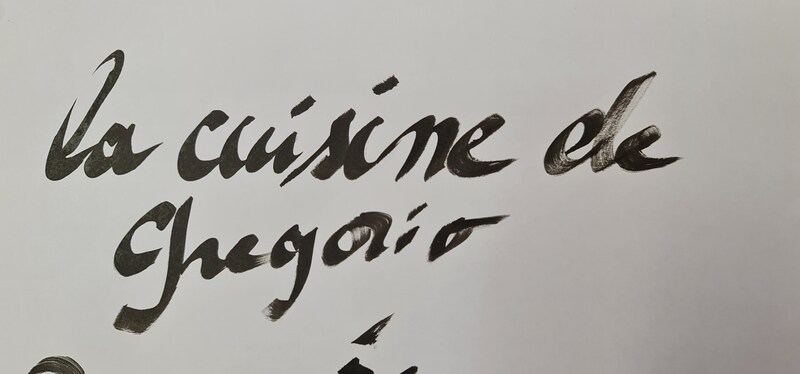 la cuisine de
Gregorio